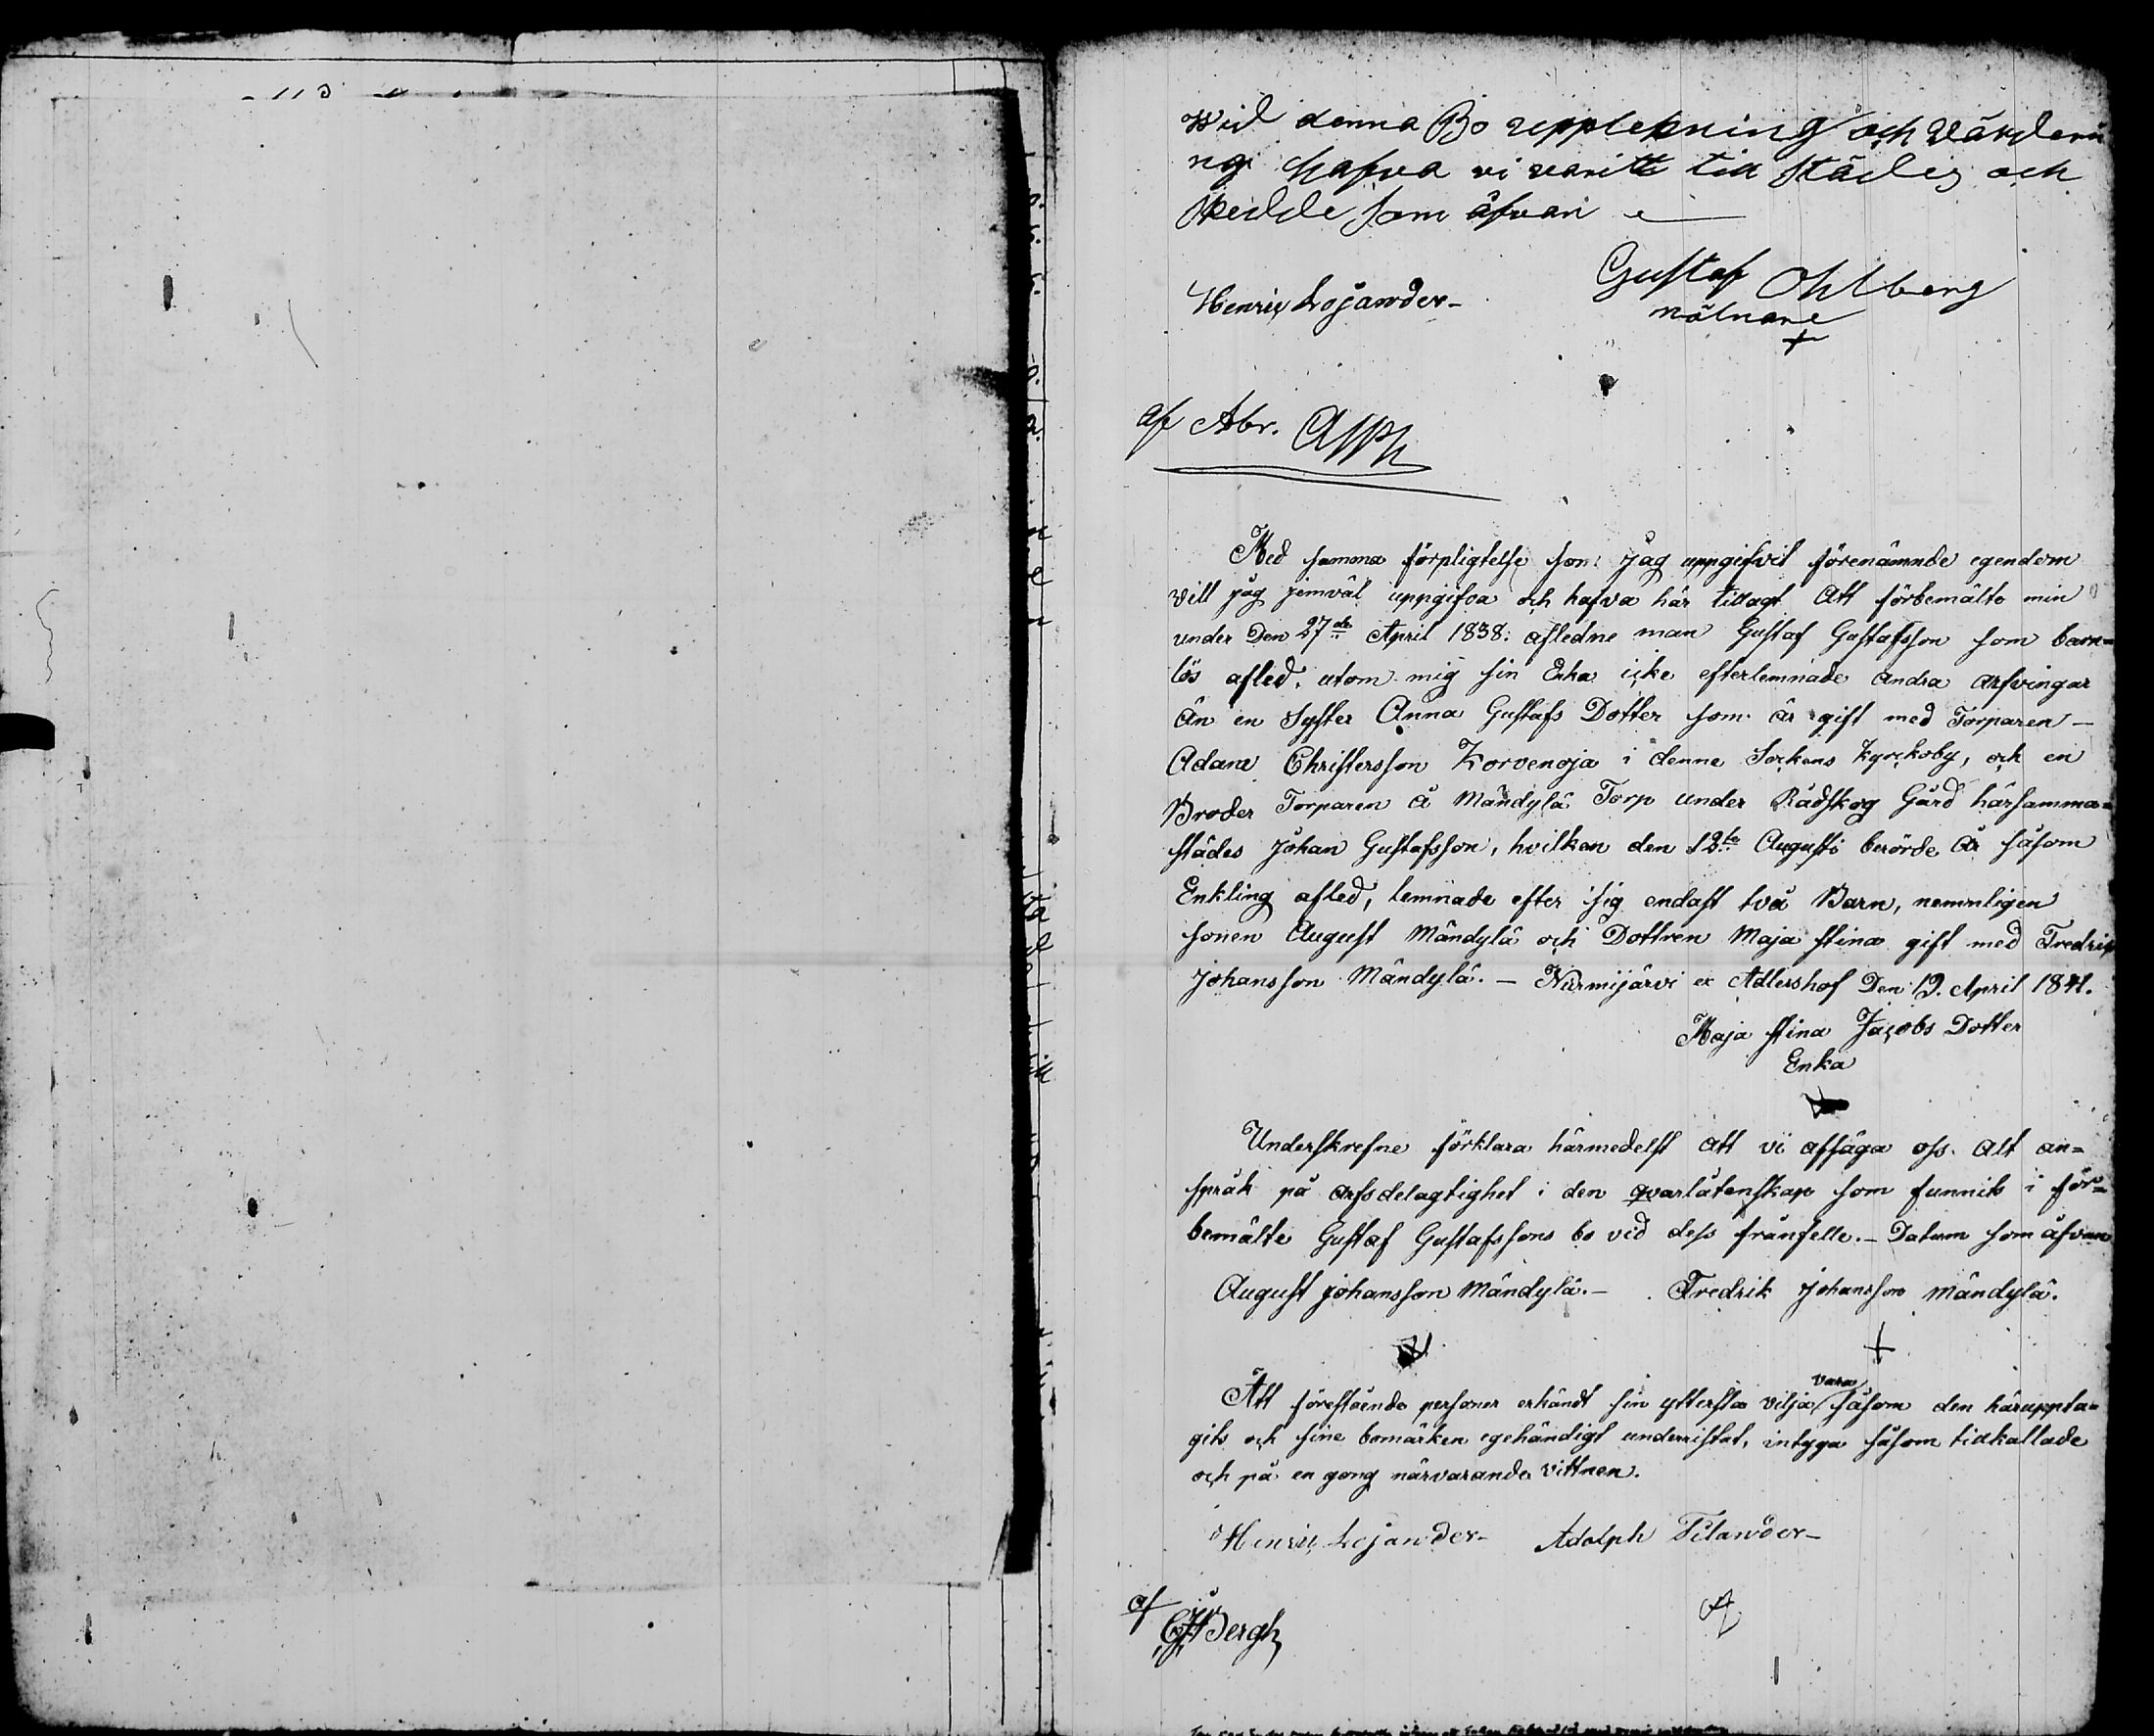 Wid denna Bo upptekning och värderi
ng hafva vi varitt till städes och
skedde som åfvan
Gustaf Ohlberg
Henric Lojander
mölnare
af Abr. Asph
Med samma förpligtelse som jag uppgifvit förenämnde egendom
vill jag jemväl uppgifva och hafva här tillagt Att förbemälte min
under Den 27de April 1838: afledne man Gustaf Gustafsson som barn=
lös afled, utom mig sin Enka icke efterlemnade andra arfvingar
än en Syster Anna Gustafs Dotter som är gift med Torparen
Adam Christersson Korvenoja i denne Sockens Kyrckoby, och en
Broder Torparen å Mändylä Torp under Rådskog Gård härsamma=
städes Johan Gustafsson, hvilken den 12te Augusti berörde År såsom
Enkling afled, lemnade efter sig endast två Barn, nemnligen
sonen August Mändylä och Dottren Maja Stina gift med Fredric
Johansson Mändylä. — Nurmijärvi ex Adlershof Den 19. April 1841.
Maja Stina Jacobs Dotter
Enka
Underskrefne förklara härmedelst Att vi afsäga oss Alt an=
språk på arfsdelagtighet i den qvarlåtenskap som funnits i för=
bemälte Gustaf Gustafssons bo vid dess frånfelle. — Datum som åfvan
August Johansson Mändylä. — Fredrik Johansson Mändylä.
vara
Att förestående personer erkändt sin yttersta vilja såsom den häruppta=
gits och sine bomärken egehändigt underristat, intyga såsom tilkallade
och på en gong närvarande vittnen.
Henric Lojander Adolph Tilander
af
Bergh